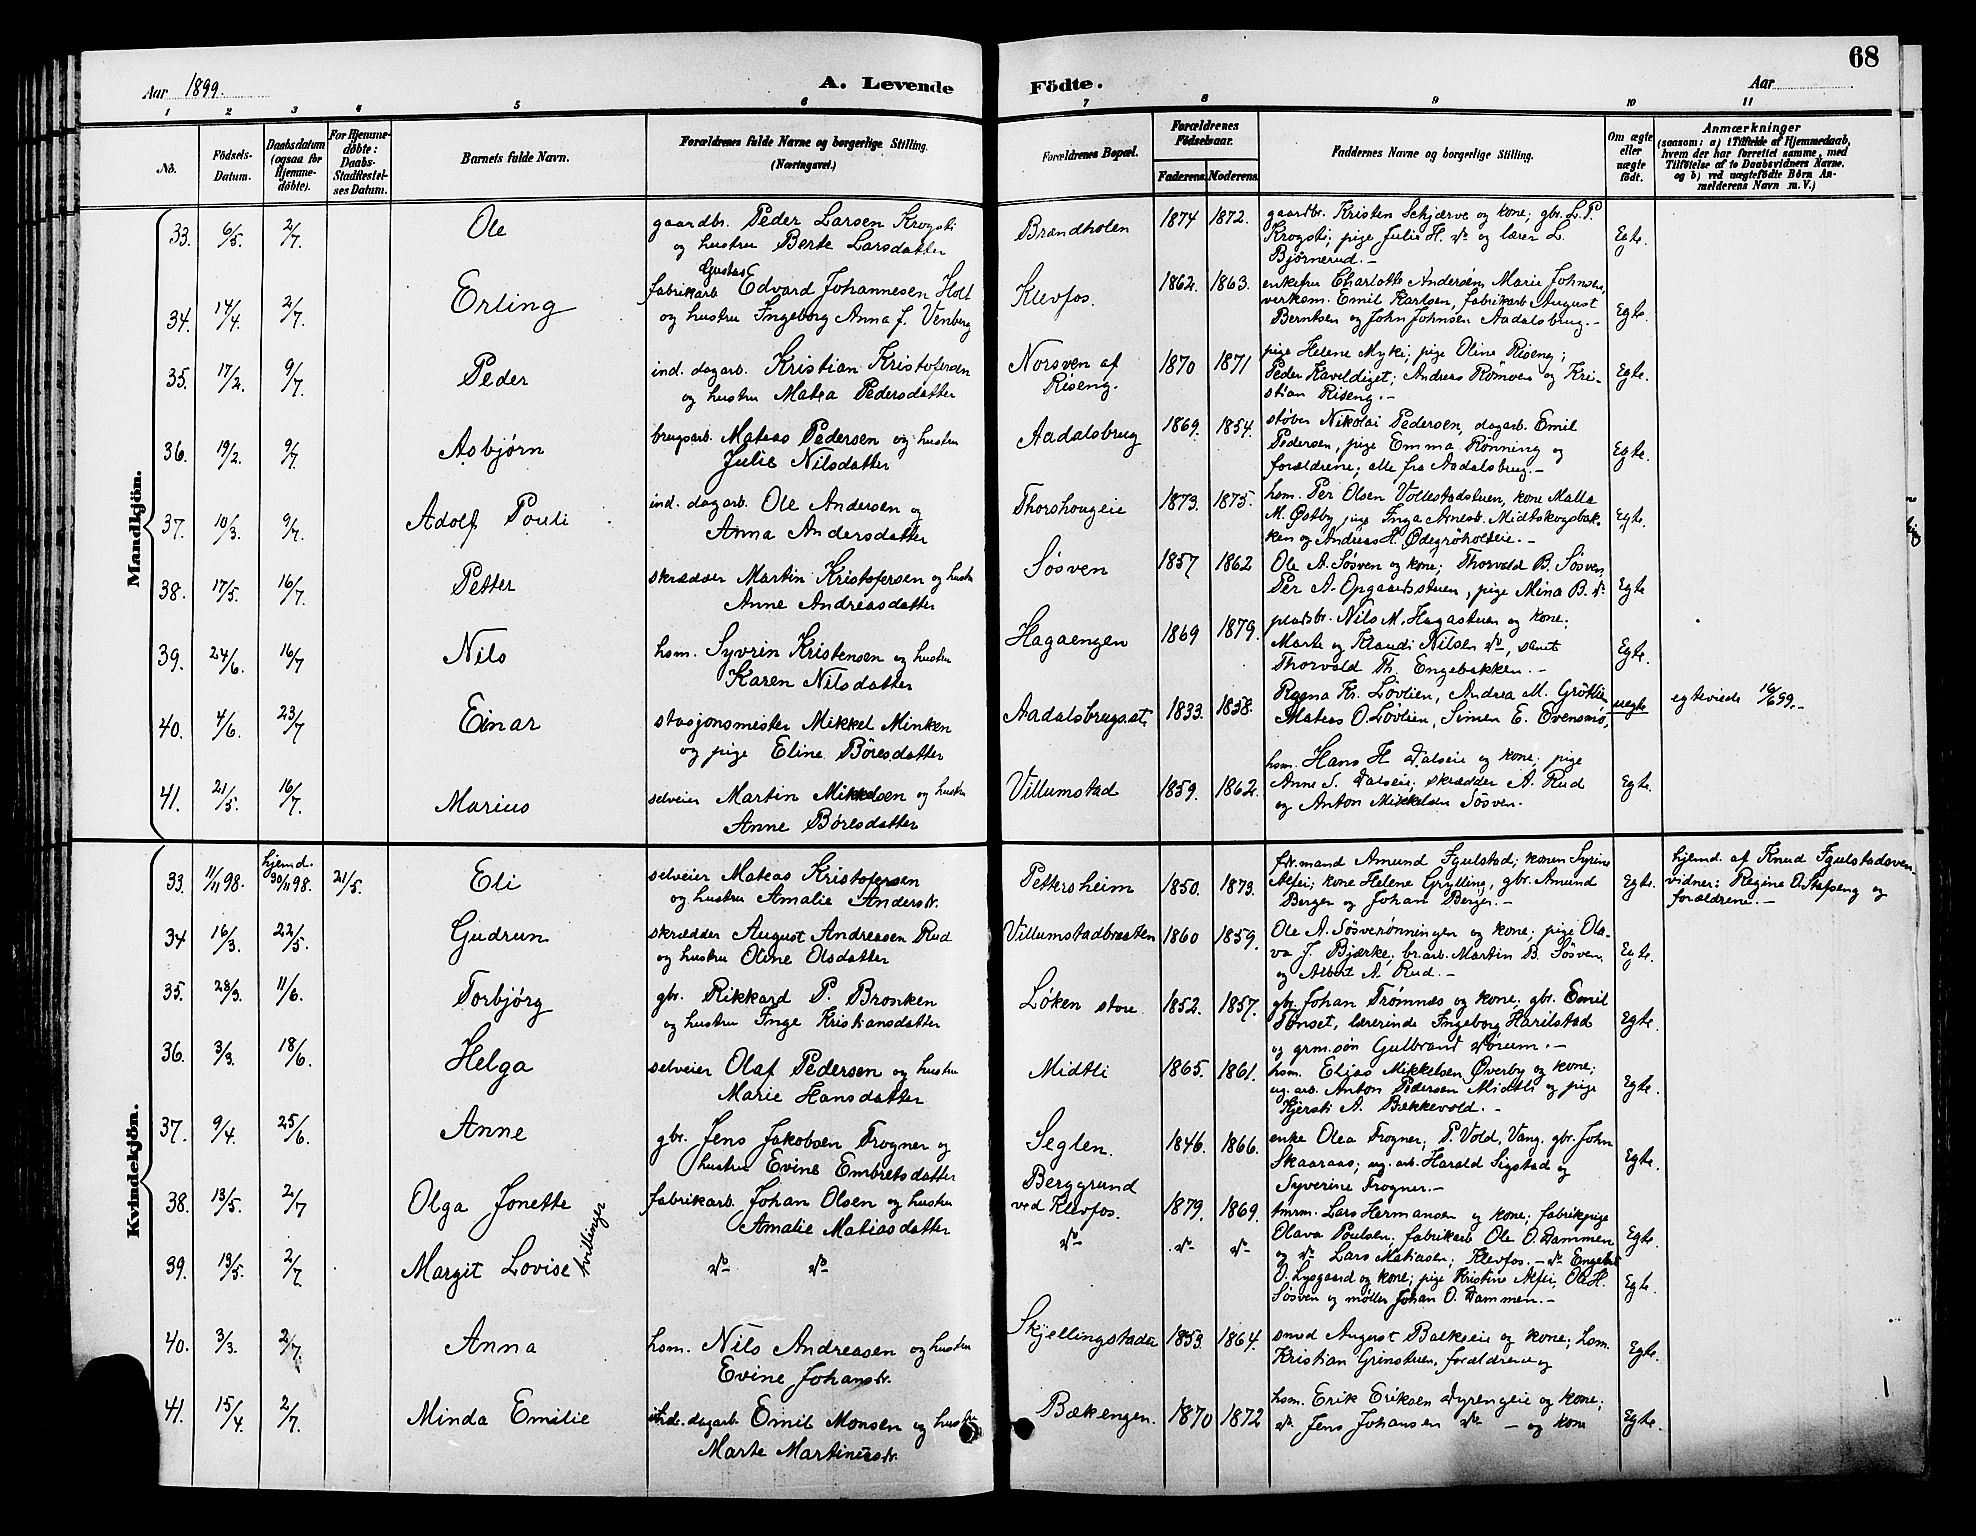 68
Aar 1899. A. Levende Födte. Aar
1 2 3 4 5 6 7 8 9 10 11
No. Födsels-Datum. Daabsdatum (ogsaa for Hjemmedöbte). For Hjemmedöbte: Daabs-Stadfæstelses Datum. Barnets fulde Navn. Forældrenes fulde Navne og borgerlige Stilling. (Næringsvei.) Forældrenes Bopæl. Forældrenes Födselsaar. Faderens. Moderens. Faddernes Navne og borgerlige Stilling. Om ægte eller uægte födt. Anmærkninger (saasom: a) i Tilfælde af Hjemmedaab, hvem der har forrettet samme, med Tilföielse af to Daabsvidners Navne, og b) ved uægtefödte Börn Anmelderens Navn m. V.)
Mandkjön.
33. 6/5. 2/7. Ole gaardbr. Peder Larsen Krogsti Brændholen 1874 1872. gaardbr. Kristen Schjærve og kone; gbr. L. P. Egte.
og hustru Berte Larsdatter Krogsti; pige Julie H. do og lærer L.
Bjørnerud.-
Gustav
34. 14/4. 2/7. Erling fabrikarb Edvard Johannesen Holt Klevfos. 1862. 1863. enkefru Charlotte Andersen, Marie Johnsen, Egte.
og hustru Ingeborg Anna J. Venberg verksm. Emil Karlsen, fabrikarb August
Berntsen og John Johnsen Aadalsbrug.-
35. 17/2. 9/7. Peder ind. dagarb. Kristian Kristofersen Norsven af 1870 1871 pige Helene Myki; pige Oline Riseng; Egte.
og hustru Matea Pedersdatter Riseng. Peder Kaveldiget; Andreas Römoen og Kri-
stian Riseng.-
36. 19/2. 9/7. Asbjørn brugsarb. Mateas Pedersen og hustru Aadalsbrug 1869. 1854. støber Nikolai Pedersen, dagarb. Emil Egte.
Julie Nilsdatter Pedersen, pige Emma Rönning og
forældrene; alle fra Aadalsbrug.-
37. 10/3. 9/7. Adolf Pouli ind. dagarb. Ole Andersen og Thorshougeie 1873. 1875. hsm. Per Olsen Vollestadstuen, kone Malla Egte.
Anna Andersdatter M. Østby, pige Inga Midtskogsbak-
ken og Andreas H. Ødegröholteie.-
38. 17/5. 16/7. Petter skrædder Martin Kristofersen og hustru Søsven 1857 1862 Ole A. Søsven og kone; Thorvald B. Søsven, Egte
Anne Andreasdatter Per A. Opgaardsstuen, pige Mina B. do
39. 24/6. 16/7 Nils hsm. Syvrin Kristensen og hustru Hagaengen 1869 1879. pladsbr. Nils M. Hagastuen og kone; Egte.
Karen Nilsdatter Marte og Klaudi Nilsen do, samt
Thorvald Th. Engebakken.-
40. 4/6. 23/7 Einar stasjonsmester Mikkel Minken Aadalsbrug st. 1833. 1858. Ragna Kr. Løvlien, Andrea M. Gröttlie, uegte egteviede 16/6 99.-
og pige Eline Böresdatter Mateas O. Løvlien, Simen E. Evensmo,
41. 21/5. 16/7. Marius selveier Martin Mikkelsen og hustru Villumstad 1859. 1862. hsm. Hans H. Dalseie og kone; pige Egte.
Anne Böresdatter Anne S. Dalseie; skrædder A. Rud
og Anton Mikkelsen Søsven.
Kvindekjön.
33. 11/11 98. hjemd. 30/11 98. 21/5. Eli selveier Mateas Kristofersen Pettersheim 1850. 1873. fhv. mand Amund Igulstad; konen Syrine Egte. hjemd. af Knud Igulstadsven
og hustru Amalie Andersdr. Alfei; kone Helene Grylling, gbr. Amund vidner: Regine O. Stafseng og
Berger og Johan Berger.- forældrene.-
34 16/3. 22/5. Gudrun skrædder August Andreasen Rud Villumstadbraaten 1860 1859. Ole A. Søsverønningen og kone; pige Ola- Egte.
og hustru Oline Olsdatter va J. Bjærke, br. arb. Martin B. Søsven,
og Albert A. Rud.-
35. 23/3. 11/6. Torbjörg gbr. Rikkard P. Bronken Løken store 1852. 1857. gbr. Johan Trømnæs og kone; gbr. Emil Egte.
og hustru Inge Kristiansdatter Tønset, lærerinde Ingeborg Harilstad
og grm.søn Gulbrand Dorum.-
36. 3/3. 18/6. Helga selveier Olaf Pedersen og hustru Midtli 1865. 1861. hsm. Elias Mikkelsen Øverby og kone; Egte.
Marie Hansdatter ug. arb. Anton Pedersen Midtli og pige
Kjersti A. Bækkevold.-
37. 9/4. 25/6. Anne gbr. Jens Jakobsen Trogner og Seglen. 1846. 1866. enke Olea Trogner; P. Vold, Vang. gbr. John Egte.
hustru Evine Embretsdatter Skaaraas; ug. arb. Harald Sigstad og
Syverine Trogner.-
38. 13/5. 2/7 Olga Jonette fabrikarb. Johan Olsen og hustru Berggrund 1879. 1869. tmrm. Lars Hermansen og kone; fabrikpige Egte.
Amalie Matiasdatter ved Klevfos. Olava Poulsen; fabrikarb Ole O. Dammen
tvillinger og do Lars Matiasen; Klevfos.- do Engebret
39. 13/5. 2/7. Margit Lovise do do do do do O. Lysgaard og kone; pige Kristine Alfei, Ole H. Egte.
Søsven og møller Johan O. Dammen.-
40. 3/3. 2/7 Anna hsm. Nils Andreasen og hustru Skjellingstader 1853. 1864. smed August Balkeeie og kone; hsm. Egte.
Evine Johansdr. Kristian Grinstuen, forældrene og
41. 15/4 2/7. Minda Emilie ind. dagarb. Emil Monsen og hustru Bækengen. 1870 1872 hsm. Erik Eriksen Dyrengeie og kone; Egte.
Marte Martinusdr. do Jens Johansen do - og kone